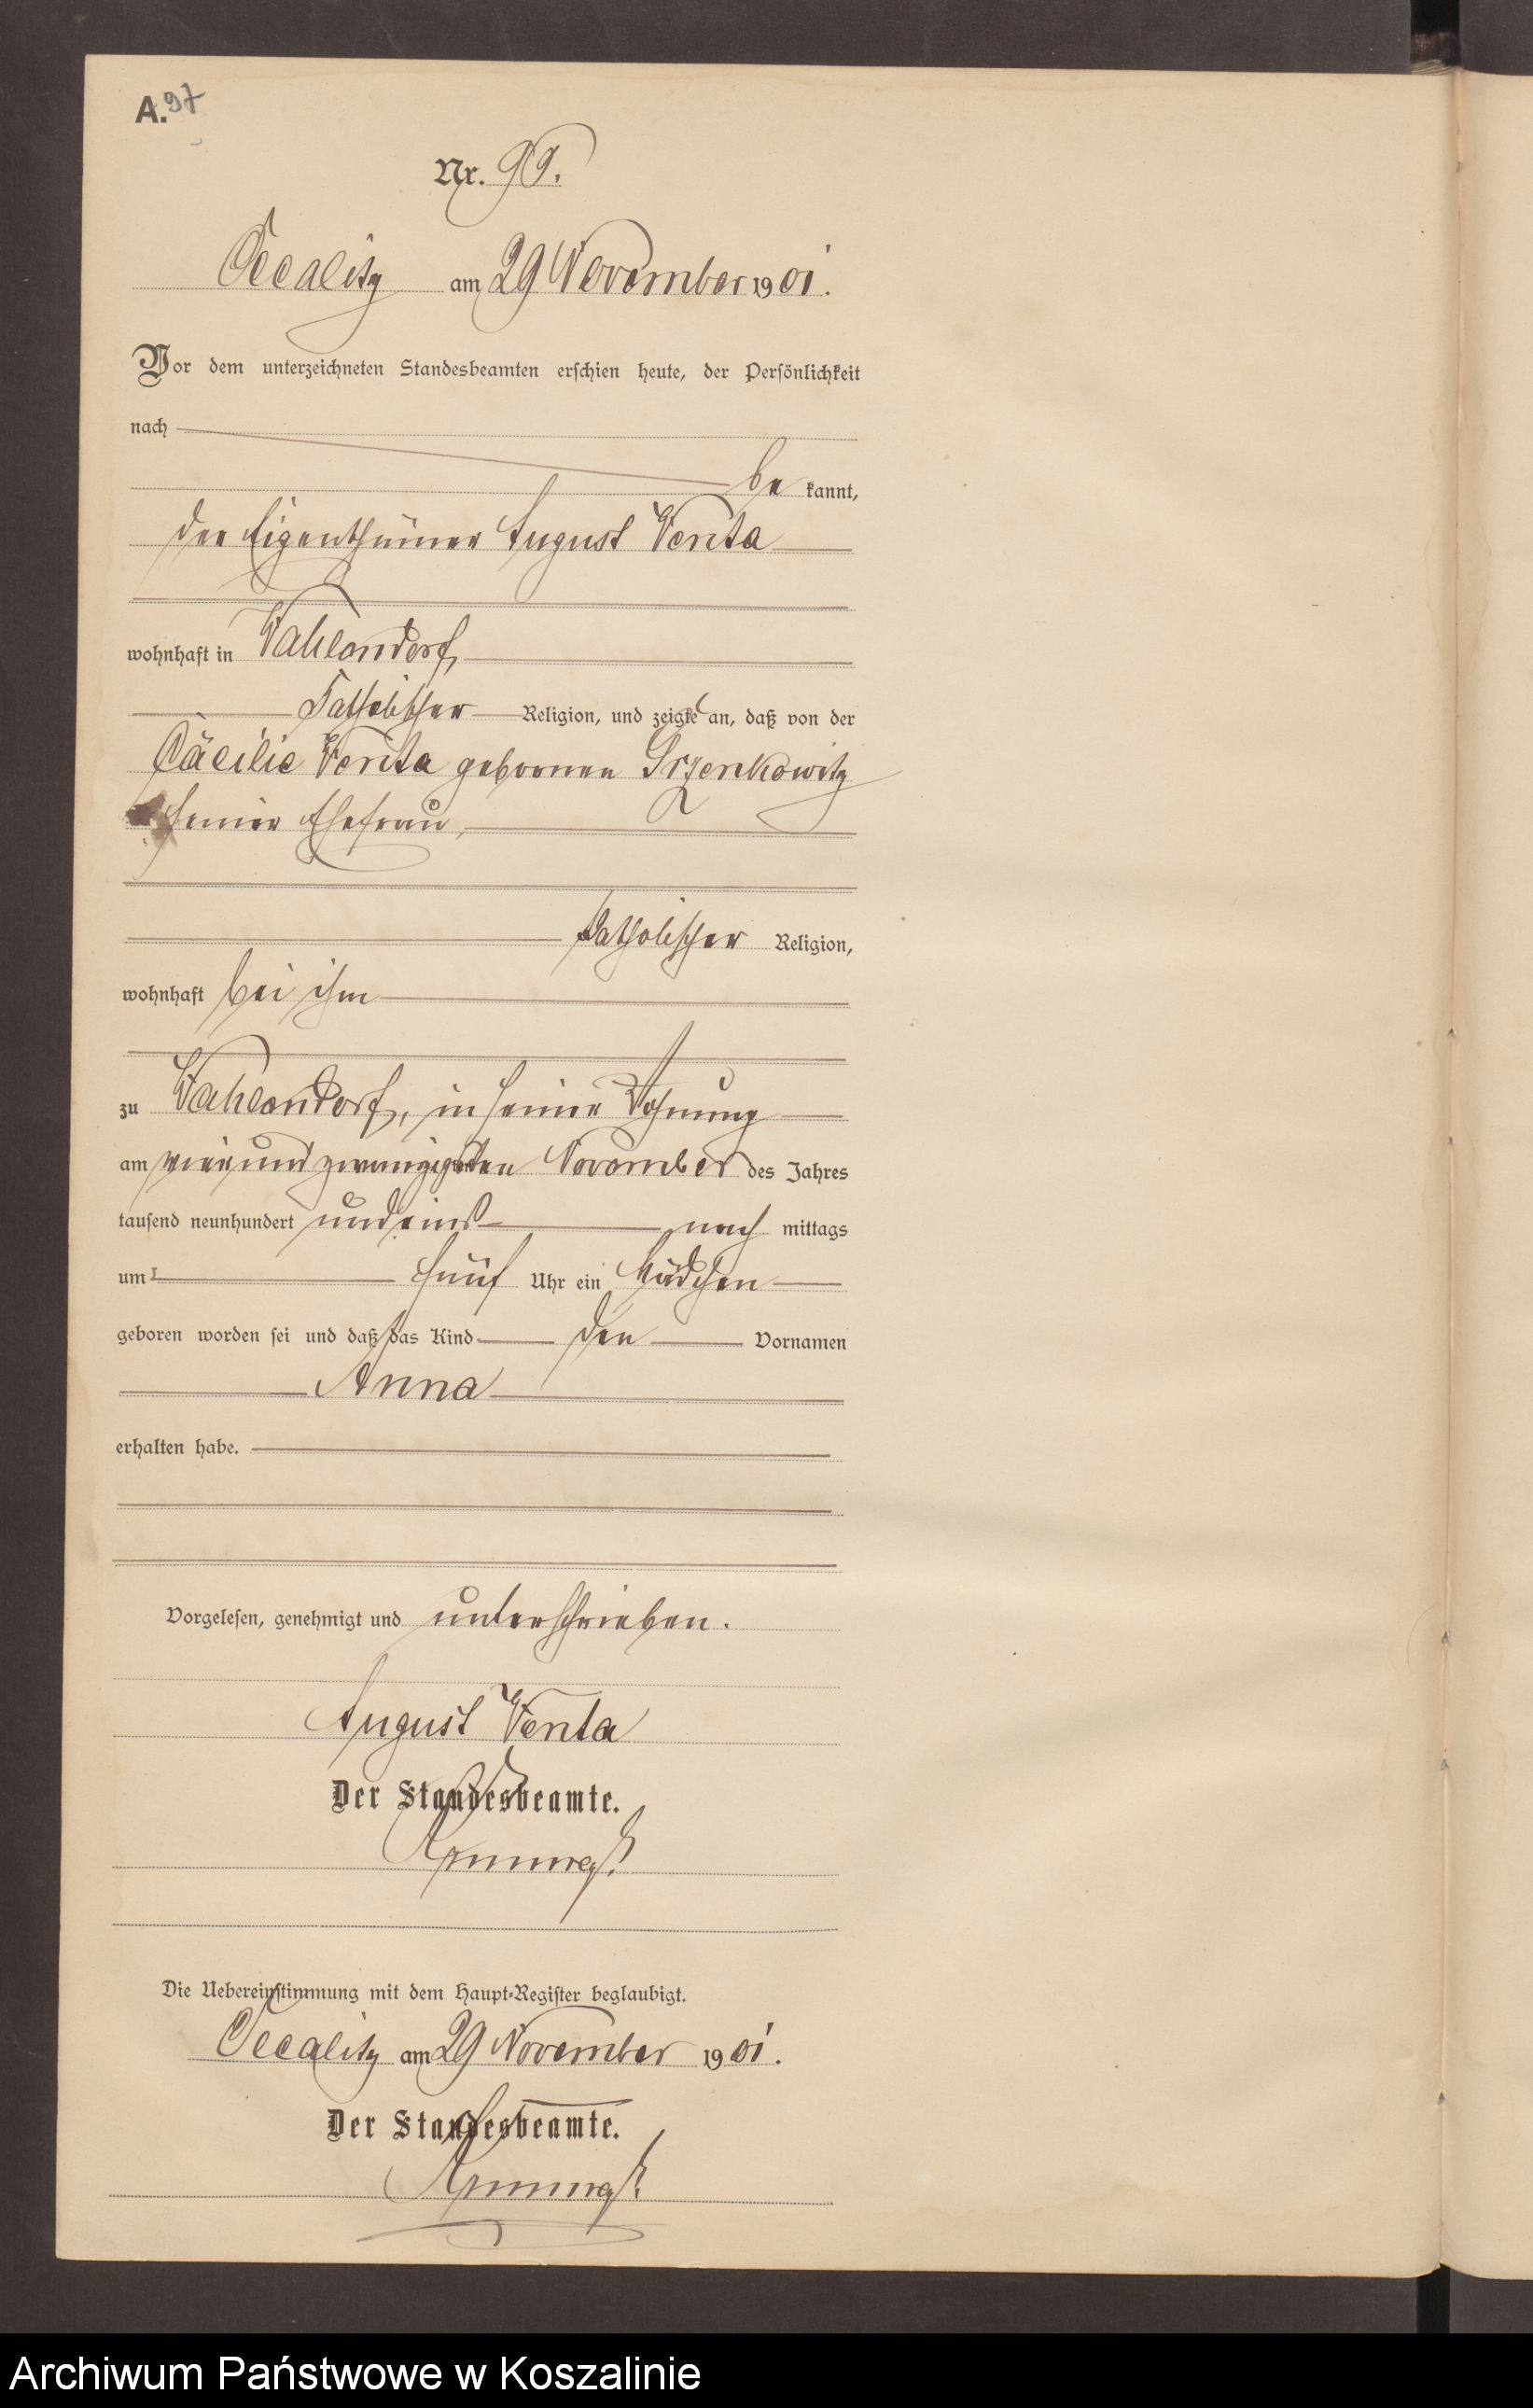 A. 97
Nr. 99.
Occalitz am 29 November 1901.
Vor dem unterzeichneten Standesbeamten erschien heute, der Persönlichkeit
nach
be kannt,
der Eigenthümer August Venta
wohnhaft in Wahlendorf,
katholischer Religion, und zeigte an, daß von der
Cäcilie Venta gebornen Grzenkowitz
seiner Ehefrau,
katholischer Religion,
wohnhaft bei ihm
zu Wahlendorf, in seiner Wohnung
am vierundzwanzigsten November des Jahres
tausend neunhundert und eins nach mittags
um fünf Uhr ein Mädchen
geboren worden sei und daß das Kind den Vornamen
Anna
erhalten habe.
Vorgelesen, genehmigt und unterschrieben.
August Venta
Der Standesbeamte.
Die Uebereinstimmung mit dem Haupt-Register beglaubigt.
Occalitz am 29 November 1901.
Der Standesbeamte.
Archiwum Państwowe w Koszalinie